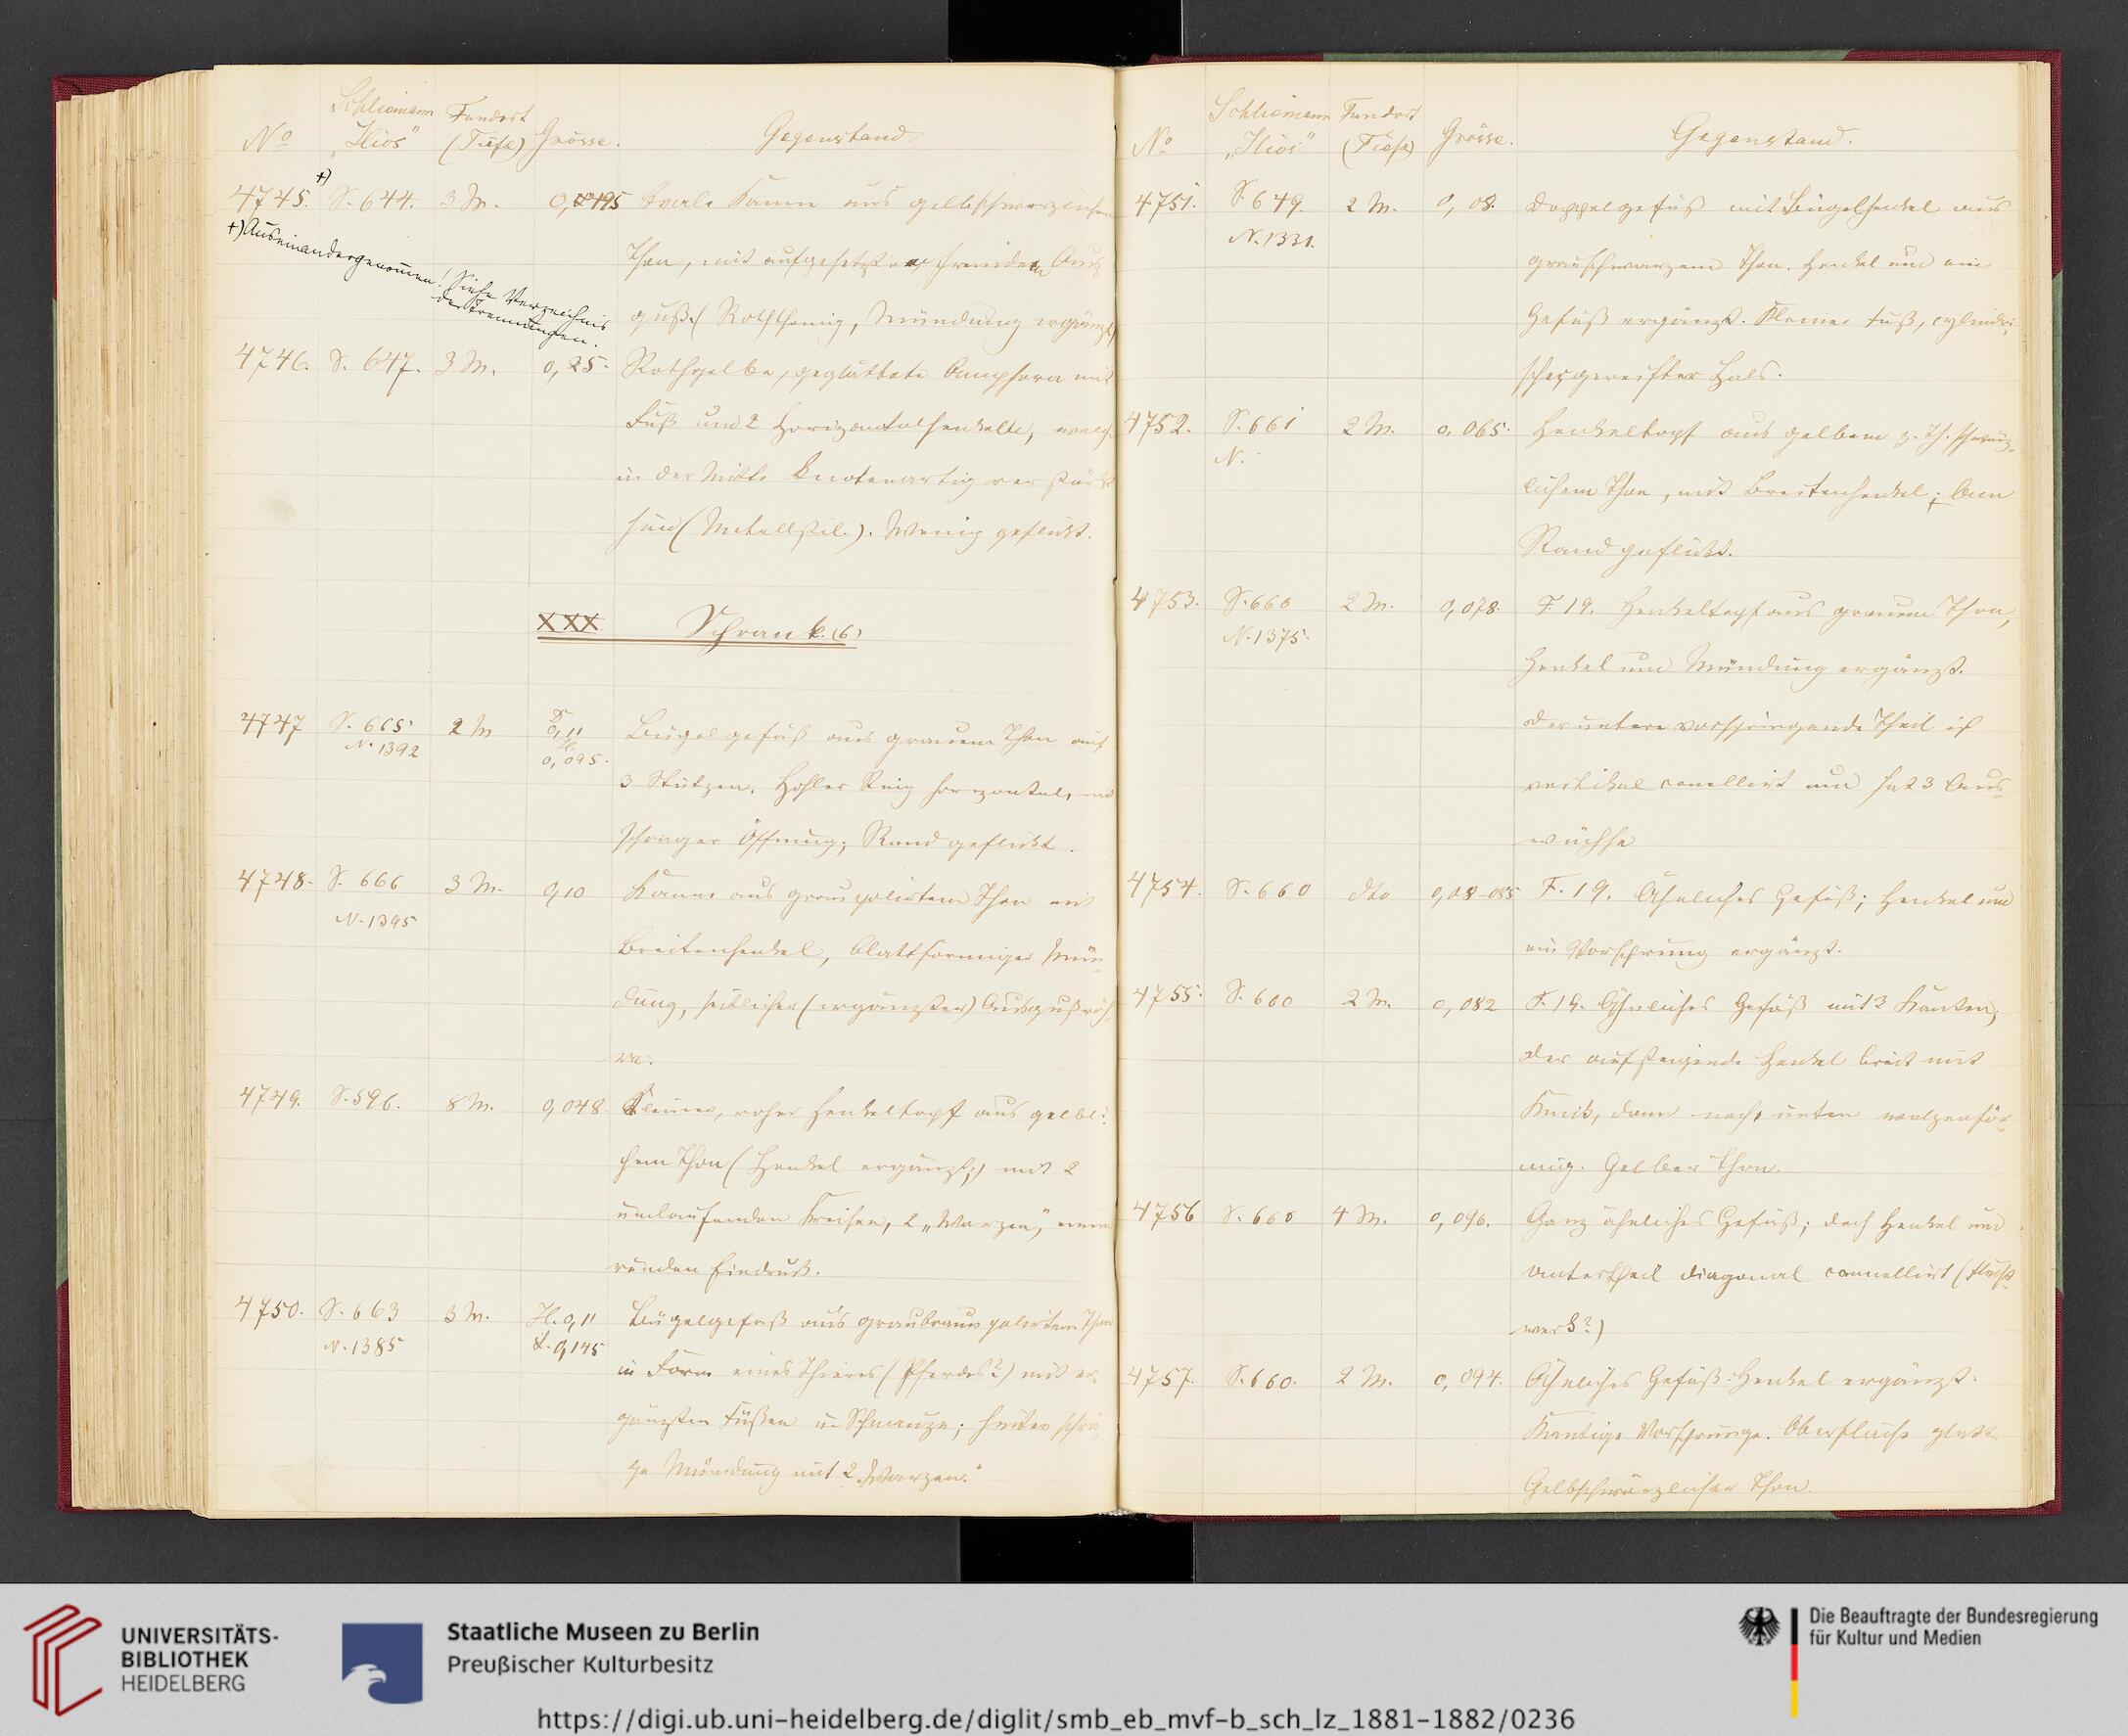 Schliemann Fundort
No "Ilios" (Tiefe) Grösse. Gegenstand
4745. +) S. 644. 3 M. 0,195 Ovale Kanne aus gelbschwarzlichem
Thon, mit aufgesetztem fremden Aus-
guß. (Roththonig, Mündung ergänzt)
+) Auseinandergenommen! Siehe Verzeichnis
der Trennungen.
4746. S. 647. 3 M. 0,25. Rothgelbe, geglättete Amphora mit
Fuß und 2 Horizontalhenkeln, welche
in der Mitte knotenartig verstärkt
sind (Metallstil.). Wenig geflickt.
XXX. Schrank. (6)
4747 S. 665. 2 M 0,11 Bügelgefäß aus grauem Thon auf
N. 1392 H. 0,095.
3 Stützen. Hohler Ring horizontal, mit
schräger Öffnung; Rand geflickt.
4748. S. 666 3 M. 0,10 Kanne aus grau polirtem Thon mit
N. 1395
Breitenhenkel, blattförmiger Mün-
dung, seitlicher (ergänzter) Ausgußröh-
re.
4749. S. 596. 8 M. 0,048. Kleiner, roher Henkeltopf aus gelbli-
chem Thon (Henkel ergänzt;) mit 2
umlaufenden Kreisen, 2 „Warzen", einem
runden Eindruck.
4750. S. 663 3 M. H. 0,11 Bügelgefäß aus graubraun polirtem Thon
N. 1385 L. 0,145
in Form eines Thieres (Pferdes?) mit er-
gänzten Füßen u. Schnauze; hinten schrä-
ge Mündung mit 2 „Warzen."
Schliemann Fundort
No „Ilios" (Tiefe) Grösse. Gegenstand.
4751. S. 649. 2 M. 0,08. Doppelgefäß mit Bügelhenkel aus
N. 1331.
grauschwarzem Thon. Henkel und ein
Gefäß ergänzt. Kleiner Fuß, cylindri-
scher, gereifter Hals.
4752. S. 661 2 M. 0,065. Henkeltopf aus gelbem z. Th. schwärz-
N.
lichem Thon, mit Breitenhenkel; Am
Rand geflickt.
4753. S. 660 2 M. 0,078. F. 19. Henkeltopf aus grauem Thon,
N. 1375.
Henkel und Mündung ergänzt.
Der untere vorspringende Theil ist
vertikal canellirt und hat 3 Aus-
wüchse
4754. S. 660 dto 0,08-085 F. 19. Ähnliches Gefäß; Henkel und
ein Vorsprung ergänzt.
4755. S. 660 2 M. 0,082 F. 19. Ähnliches Gefäß mit 3 Kanten;
der aufsteigende Henkel breit mit
Knick, dann nach unten walzenför-
mig. Gelber Thon.
4756 S. 660 4 M. 0,096. Ganz ähnliches Gefäß; doch Henkel und
Untertheil diagonal cannellirt (Flecht-
werk?)
4757. S. 660. 2 M. 0,094. Ähnliches Gefäß. Henkel ergänzt.
Kantige Vorsprünge. Oberfläche glatt
Gelbschwärzlicher Thon.
UNIVERSITÄTS-
BIBLIOTHEK
HEIDELBERG
Staatliche Museen zu Berlin
Preußischer Kulturbesitz
Die Beauftragte der Bundesregierung
für Kultur und Medien
https://digi.ub.uni-heidelberg.de/diglit/smb_eb_mvf-b_sch_lz_1881-1882/0236